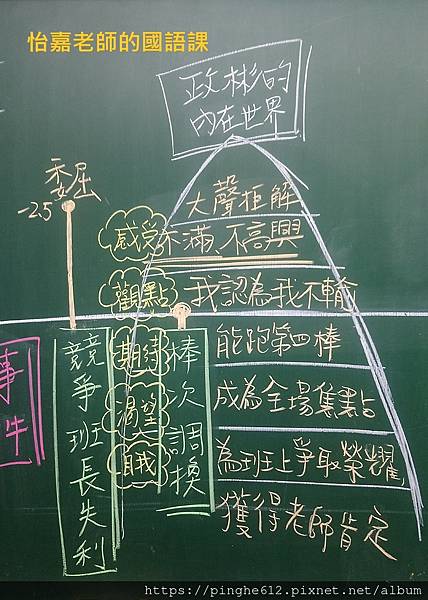 怡嘉老師的國語課
政彬的
內在世界
委屈
-2.5
大聲拒解
感受
不滿、不高興
觀點
我認為我不輸
事件
競爭班長失利
期待
渴望
自我
棒次調換
能跑第四棒
成為全場焦點
為班上爭取榮耀
獲得老師肯定
https://pinghe612.pixnet.net/album